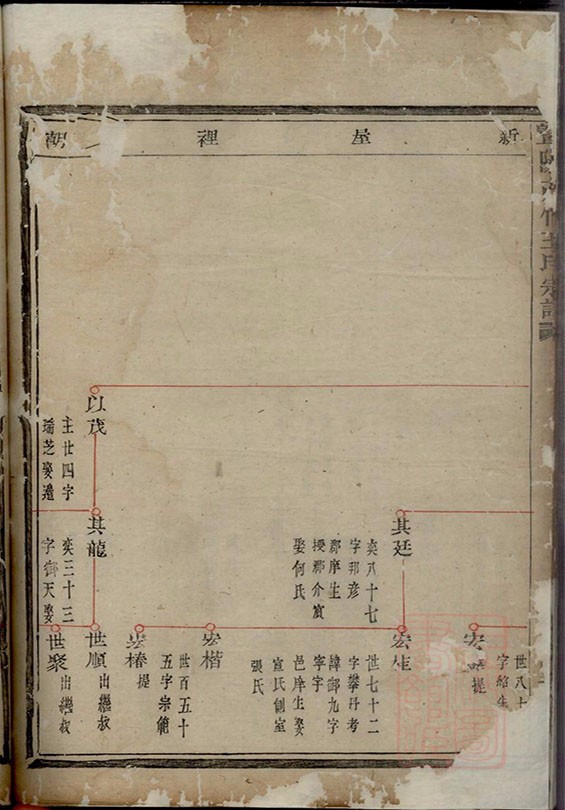 新屋裡朝
竹王氏宗譜
以茂
主廿四字
瑞芝娶邊
其廷
奕八十七
字邦彥
郡庠生
授鄉介賓
娶何氏
其龍
奕三十三
字御天娶
世八十
字紹生
宏
提
宏
世七十二
字攀丹考
諱御九字
寧宇
邑庠生娶
宣氏側室
張氏
宏楷
世百五十
五字宗範
宏椿
提
世順
出繼叔
世聚
出繼叔